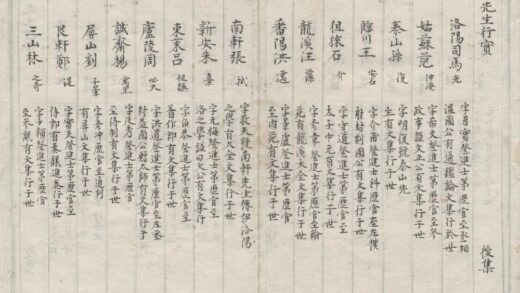 先生行實
後集
洛陽司馬光
字君實登進士第歷官至丞相
溫國公有通鑑論文集行於世
姑蘇范仲淹
字希文登進士第歷官至參
政事諡文正公有文集行于世
泰山孫復
字明復號泰山先
生有文集行于世
臨川王安石
字介甫登進士科歷官至左僕
射封荊國公有文集行于世
徂徠石介
字守道登進士第歷官至
太子中允有文集行于世
龍溪汪藻
字彥章登進士第歷官至翰
苑有龍溪文集行于世
番陽洪邁
字景盧登進士第歷官
至內苑有文集行于世
南軒張栻
字敬夫號南軒先生傳伊洛
之學有大全文集行于世
新安朱熹
字元晦登進士第歷官至
洛之學諡曰文公有文集行
東萊呂祖謙
字伯恭登進士第歷官至
著作郎有文集行于世
廬陵周必大
字洪道登進士第歷官至左丞
封益國公贈太師有文集行于
誠齋楊萬里
字廷秀登進士第歷官
至待制有文集行于世
屏山劉子翬
字彥沖歷官至通判
有屏山文集行于世
艮軒鄭湜
字溥之登進士第歷官至
侍郎有奏議進卷行于世
三山林之奇
字少穎登進士第歷官
至有文集行于世